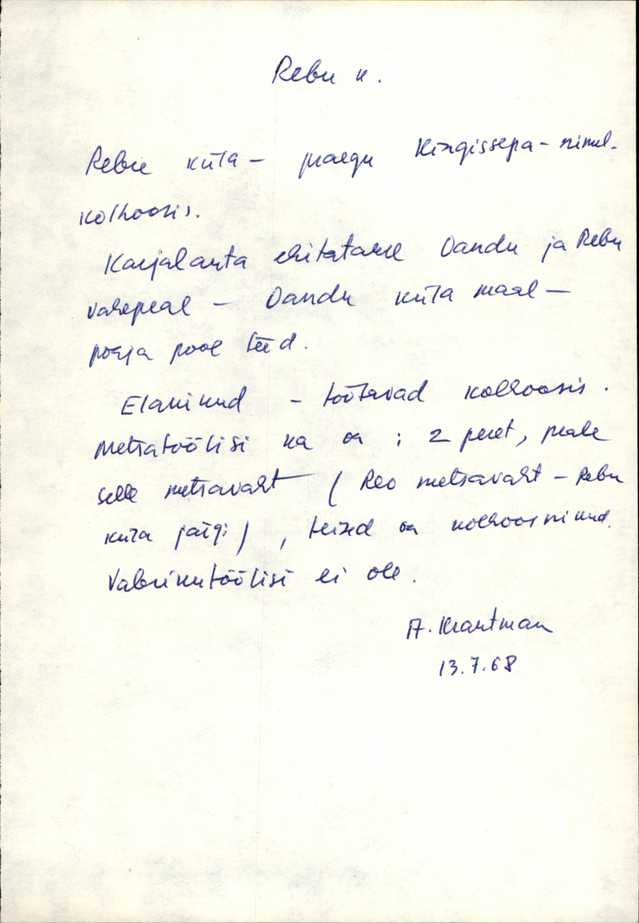 Rebu k.
Rebu küla – praegu Kingissepa-nimel.
kolhoosis.
Karjalauta ehitatakse Oandu ja Rebu
vahepeal – Oandu küla maal –
põhja pool teed.
Elanikud – töötavad kolhoosis.
Metsatöölisi ka on : 2 peret, peale
selle metsavaht (Reo metsavaht – Rebu
küla järgi), teised on kolhoosnikud.
Vabrikutöölisi ei ole.
A. Krautman
13.7.68